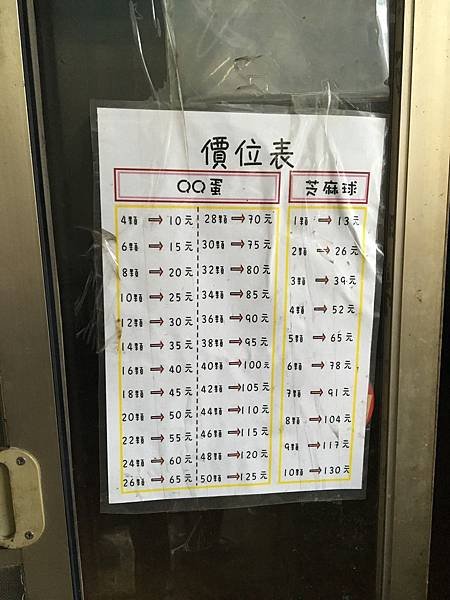 價位表
QQ蛋
4顆→10元
6顆→15元
8顆→20元
10顆→25元
12顆→30元
14顆→35元
16顆→40元
18顆→45元
20顆→50元
22顆→55元
24顆→60元
26顆→65元
28顆→70元
30顆→75元
32顆→80元
34顆→85元
36顆→90元
38顆→95元
40顆→100元
42顆→105元
44顆→110元
46顆→115元
48顆→120元
50顆→125元
芝麻球
1顆→13元
2顆→26元
3顆→39元
4顆→52元
5顆→65元
6顆→78元
7顆→91元
8顆→104元
9顆→117元
10顆→130元